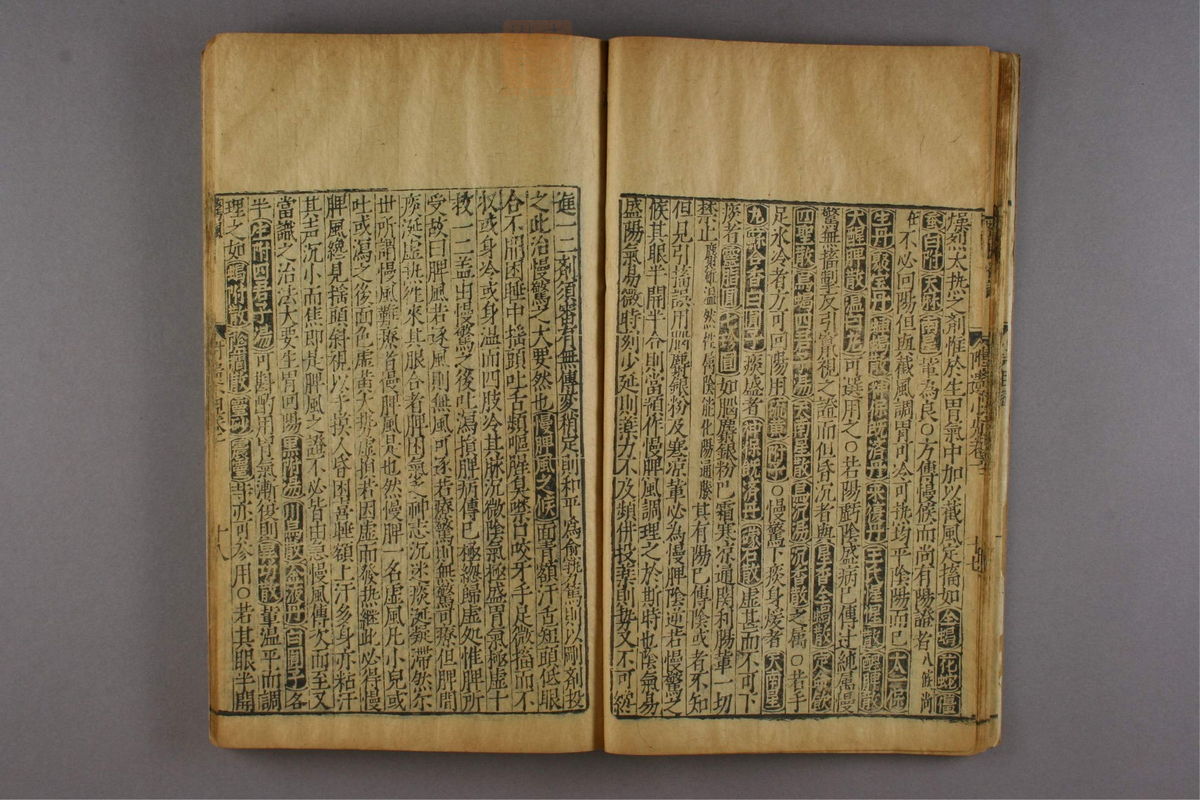 燥烈大熱之劑惟於生胃氣中加以截風定搐如全蝎花蛇僵
蚕白附天麻南星輩為良○方傳慢候而尚有陽證者八候尚
在不必回陽但與截風調胃可冷可熱均平陰陽而已
生丹聚宝丹神保既济丹王氏惺惺散醒脾散
大醒脾散温白丸可選用之○若陽虧陰盛病已傳过純属慢
驚無搐掣反引竄視之證而但昏沉者與星香全蝎散定命飲
四聖散烏蝎四君子湯天南星散沉香散之屬○若手
足氷冷者方可回陽用附子○慢驚下痰身煖者大南星
丸蘇合香白圓子痰盛者神保既济丹礞石散虛甚而不可下
痰者靈脂圓七珍圓如腦麝銀粉巴霜寒凉通関利腸輩一切
禁止其有陽已傳陰或者不知
但見引搐誤用腦麝銀粉及寒凉輩必為慢脾陰逆若慢驚之
候其眼半開半合則當預作慢脾風調理之於斯時也陰氣易
盛陽氣易微時刻少延則藥力不及頻併投藥則毋又不可緩
進一二劑須審有無傳变稍定則和平為愈銚驚則以剛劑投
之此治慢驚之大要然也慢脾風之候面青額汗舌短頭低眼
合不開困睡中搖頭吐舌頻嘔腥臭噤口咬牙手足微搐而不
収或身冷或身温而四肢冷其脉沉微陰氣極盛胃氣極虛十
救一二盖由慢驚之後吐瀉損脾病傳已極緫歸虛処惟脾所
受故曰脾風若逐風則無風可逐若療驚則無驚可療但脾間
痰涎虛热往來其眼合者脾困氣乏神志沉迷痰涎凝滯然尔
世所謂慢風難療者慢脾風是也然慢脾一名虛風凡小兒或
吐或瀉之後面色虛黄大热虛損若因虛而發热継此必皆慢
脾風纔見搖頭斜視以手摸人昏困喜睡額上汗多身亦粘汗
其声沉小而焦即是脾風之證不必皆由急慢風傳次而至又
當識之治法大要生胃回陽黑附湯川烏散金液丹白圓子各
半生附四君子湯可斟酌用胃氣漸復則異功散輩温平而調
理之如蝎附散陰癎散等亦可參用○若其眼半開